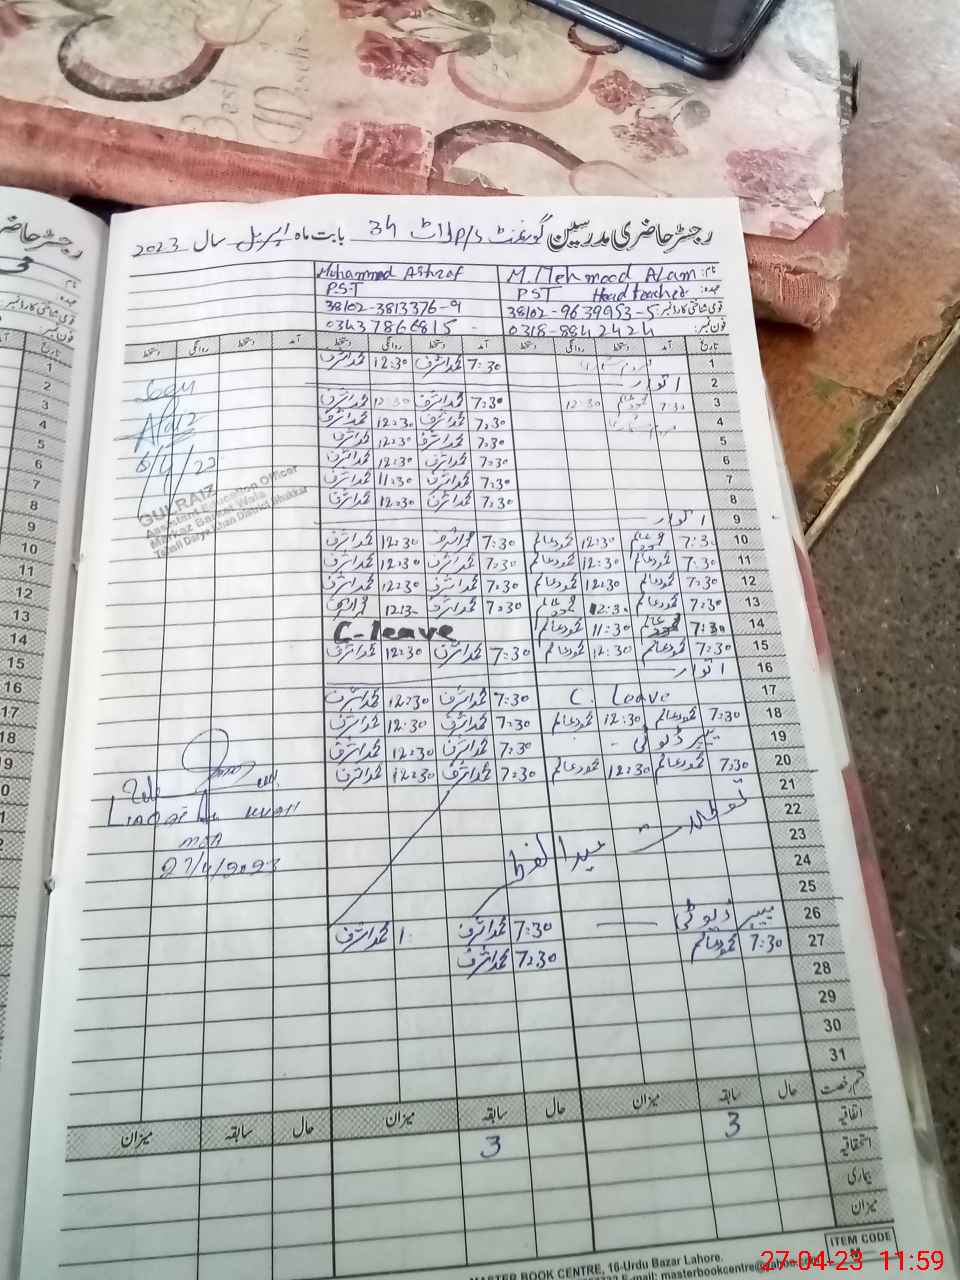 رجسٹر حاضری مدرسین گورنمنٹ P/S لاٹ 34 بابت ماہ اپریل سال 2023
نام: M. Mehmood Alam Muhammad Ashraf
عہدہ: PST Head teacher PST
قومی شناختی کارڈ نمبر: 38102-9639953-5 38102-3813376-9
فون نمبر: 0318-8842424 03437866815
تاریخ آمد دستخط روانگی دستخط آمد دستخط روانگی دستخط آمد دستخط روانگی دستخط
1 7:30 محمد اشرف 12:30 محمد اشرف
2 اتوار
3 7:30 محمود عالم 12:30 7:30 محمد اشرف 12:30 محمد اشرف
4 7:30 محمد اشرف 12:30 محمد اشرف
5 7:30 محمد اشرف 12:30 محمد اشرف
6 7:30 محمد اشرف 12:30 محمد اشرف
7 7:30 محمد اشرف 11:30 محمد اشرف
8 7:30 محمد اشرف 12:30 محمد اشرف
9 اتوار
10 7:30 محمود عالم 12:30 محمود عالم 7:30 محمد اشرف 12:30 محمد اشرف
11 7:30 محمود عالم 12:30 محمود عالم 7:30 محمد اشرف 12:30 محمد اشرف
12 7:30 محمود عالم 12:30 محمود عالم 7:30 محمد اشرف 12:30 محمد اشرف
13 7:30 محمود عالم 12:30 محمود عالم 7:30 محمد اشرف 12:30 محمد اشرف
14 7:30 محمود عالم 11:30 محمود عالم C-leave
15 7:30 محمود عالم 12:30 محمود عالم 7:30 محمد اشرف 12:30 محمد اشرف
16 اتوار
17 C. Leave 7:30 محمد اشرف 12:30 محمد اشرف
18 7:30 محمود عالم 12:30 محمود عالم 7:30 محمد اشرف 12:30 محمد اشرف
19 پیپر ڈیوٹی 7:30 محمد اشرف 12:30 محمد اشرف
20 7:30 محمود عالم 12:30 محمود عالم 7:30 محمد اشرف 12:30 محمد اشرف
21
22 تعطیلات
23 عید الفطر
24
25
26 پیپر ڈیوٹی 7:30 محمد اشرف 1 محمد اشرف
27 7:30 محمود عالم 7:30 محمد اشرف
28
29
30
31
قسم رخصت حال سابقہ میزان حال سابقہ میزان حال سابقہ میزان
اتفاقیہ 3 3
استحقاقیہ
بیماری
میزان
GULRAIZ
Assistant Education Officer
Tehsil Darya Khan District Bhakkar
MEA
27/4/2023
ITEM CODE
MASTER BOOK CENTRE, 16-Urdu Bazar Lahore.
E-mail: masterbookcentre@yahoo.com
27-04-23 11:59